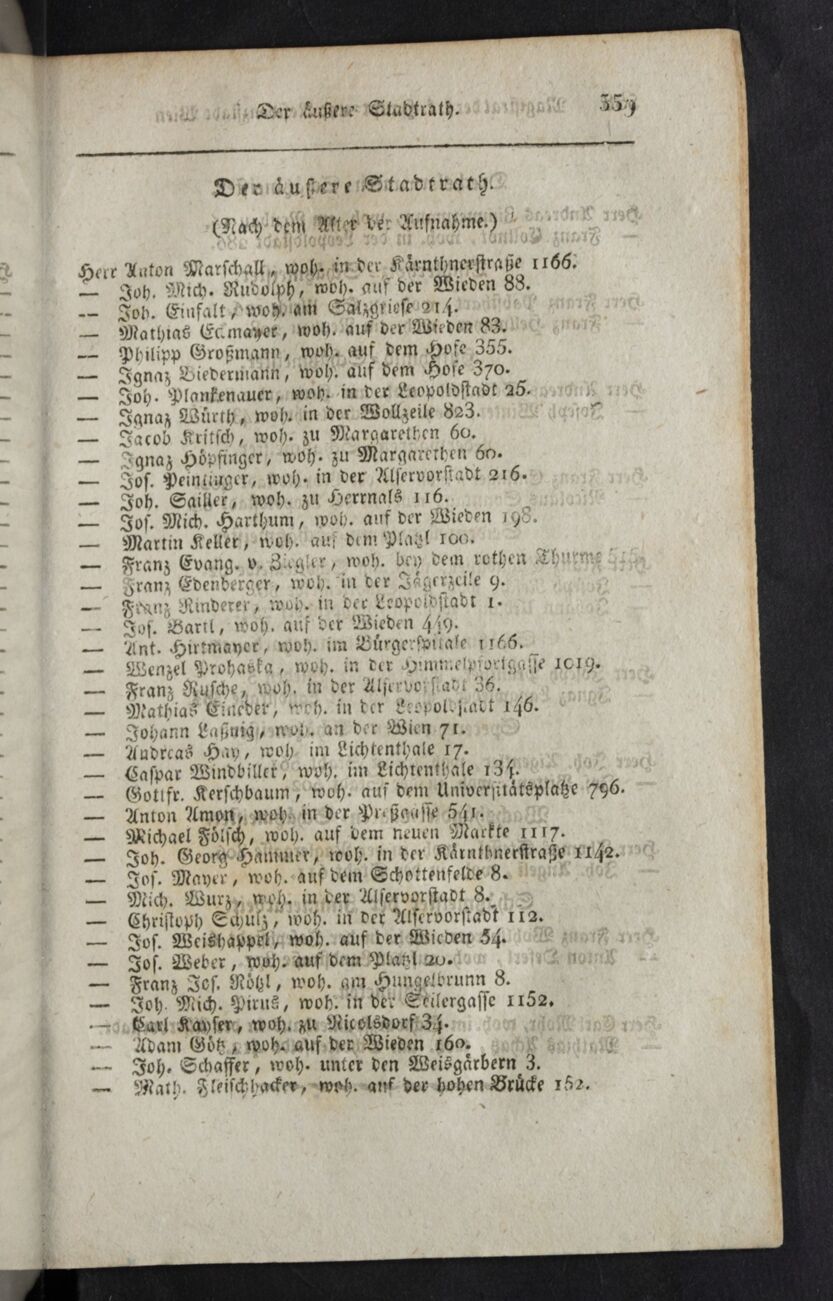 Der äußere Stadtrath. 359
Der äussere Stadtrath.
(Nach dem Alter der Aufnahme.)
Herr Anton Marschall, woh. in der Kärnthnerstraße 1166.
— Joh. Mich. Rudolph, woh. auf der Wieden 88.
— Joh. Einfalt, woh. am Salzgriese 214.
— Mathias Edmayer, woh. auf der Wieden 83.
— Philipp Großmann, woh. auf dem Hofe 355.
— Ignaz Biedermann, woh. auf dem Hofe 370.
— Joh. Plankenauer, woh. in der Leopoldstadt 25.
— Ignaz Würth, woh. in der Wollzeile 823.
— Jacob Kritsch, woh. zu Margarethen 60.
— Ignaz Höpfinger, woh. zu Margarethen 60.
— Jos. Peintinger, woh. in der Alservorstadt 216.
— Joh. Sailler, woh. zu Herrnals 116.
— Jos. Mich. Harthum, woh. auf der Wieden 198.
— Martin Keller, woh. auf dem Platzl 100.
— Franz Evang. v. Ziegler, woh. bey dem rothen Thurme
— Franz Edenberger, woh. in der Jägerzeile 9.
— Franz Rinderer, woh. in der Leopoldstadt 1.
— Jos. Bartl, woh. auf der Wieden 449.
— Ant. Hirtmayer, woh. im Bürgerspitale 1166.
— Wenzel Prohaska, woh. in der Himmelpfortgasse 1019.
— Franz Rusche, woh. in der Alservorstadt 36.
— Mathias Eineder, woh. in der Leopoldstadt 146.
— Johann Laßnig, woh. an der Wien 71.
— Andreas Hay, woh. im Lichtenthale 17.
— Caspar Windbiller, woh. im Lichtenthale 134.
— Gottfr. Kerschbaum, woh. auf dem Universitätsplatze 796.
— Anton Amon, woh. in der Preßgasse 541.
— Michael Fölsch, woh. auf dem neuen Markte 1117.
— Joh. Georg Hammer, woh. in der Kärnthnerstraße 1142.
— Jos. Mayer, woh. auf dem Schottenfelde 8.
— Mich. Wurz, woh. in der Alservorstadt 8.
— Christoph Schulz, woh. in der Alservorstadt 112.
— Jos. Weishappel, woh. auf der Wieden 54.
— Jos. Weber, woh. auf dem Platzl 20.
— Franz Jos. Rötzl, woh. am Hungelbrunn 8.
— Joh. Mich. Pirus, woh. in der Seilergasse 1152.
— Carl Kayser, woh. zu Nicolsdorf 34.
— Adam Götz, woh. auf der Wieden 160.
— Joh. Schaffer, woh. unter den Weisgärbern 3.
— Math. Fleischhacker, woh. auf der hohen Brücke 152.